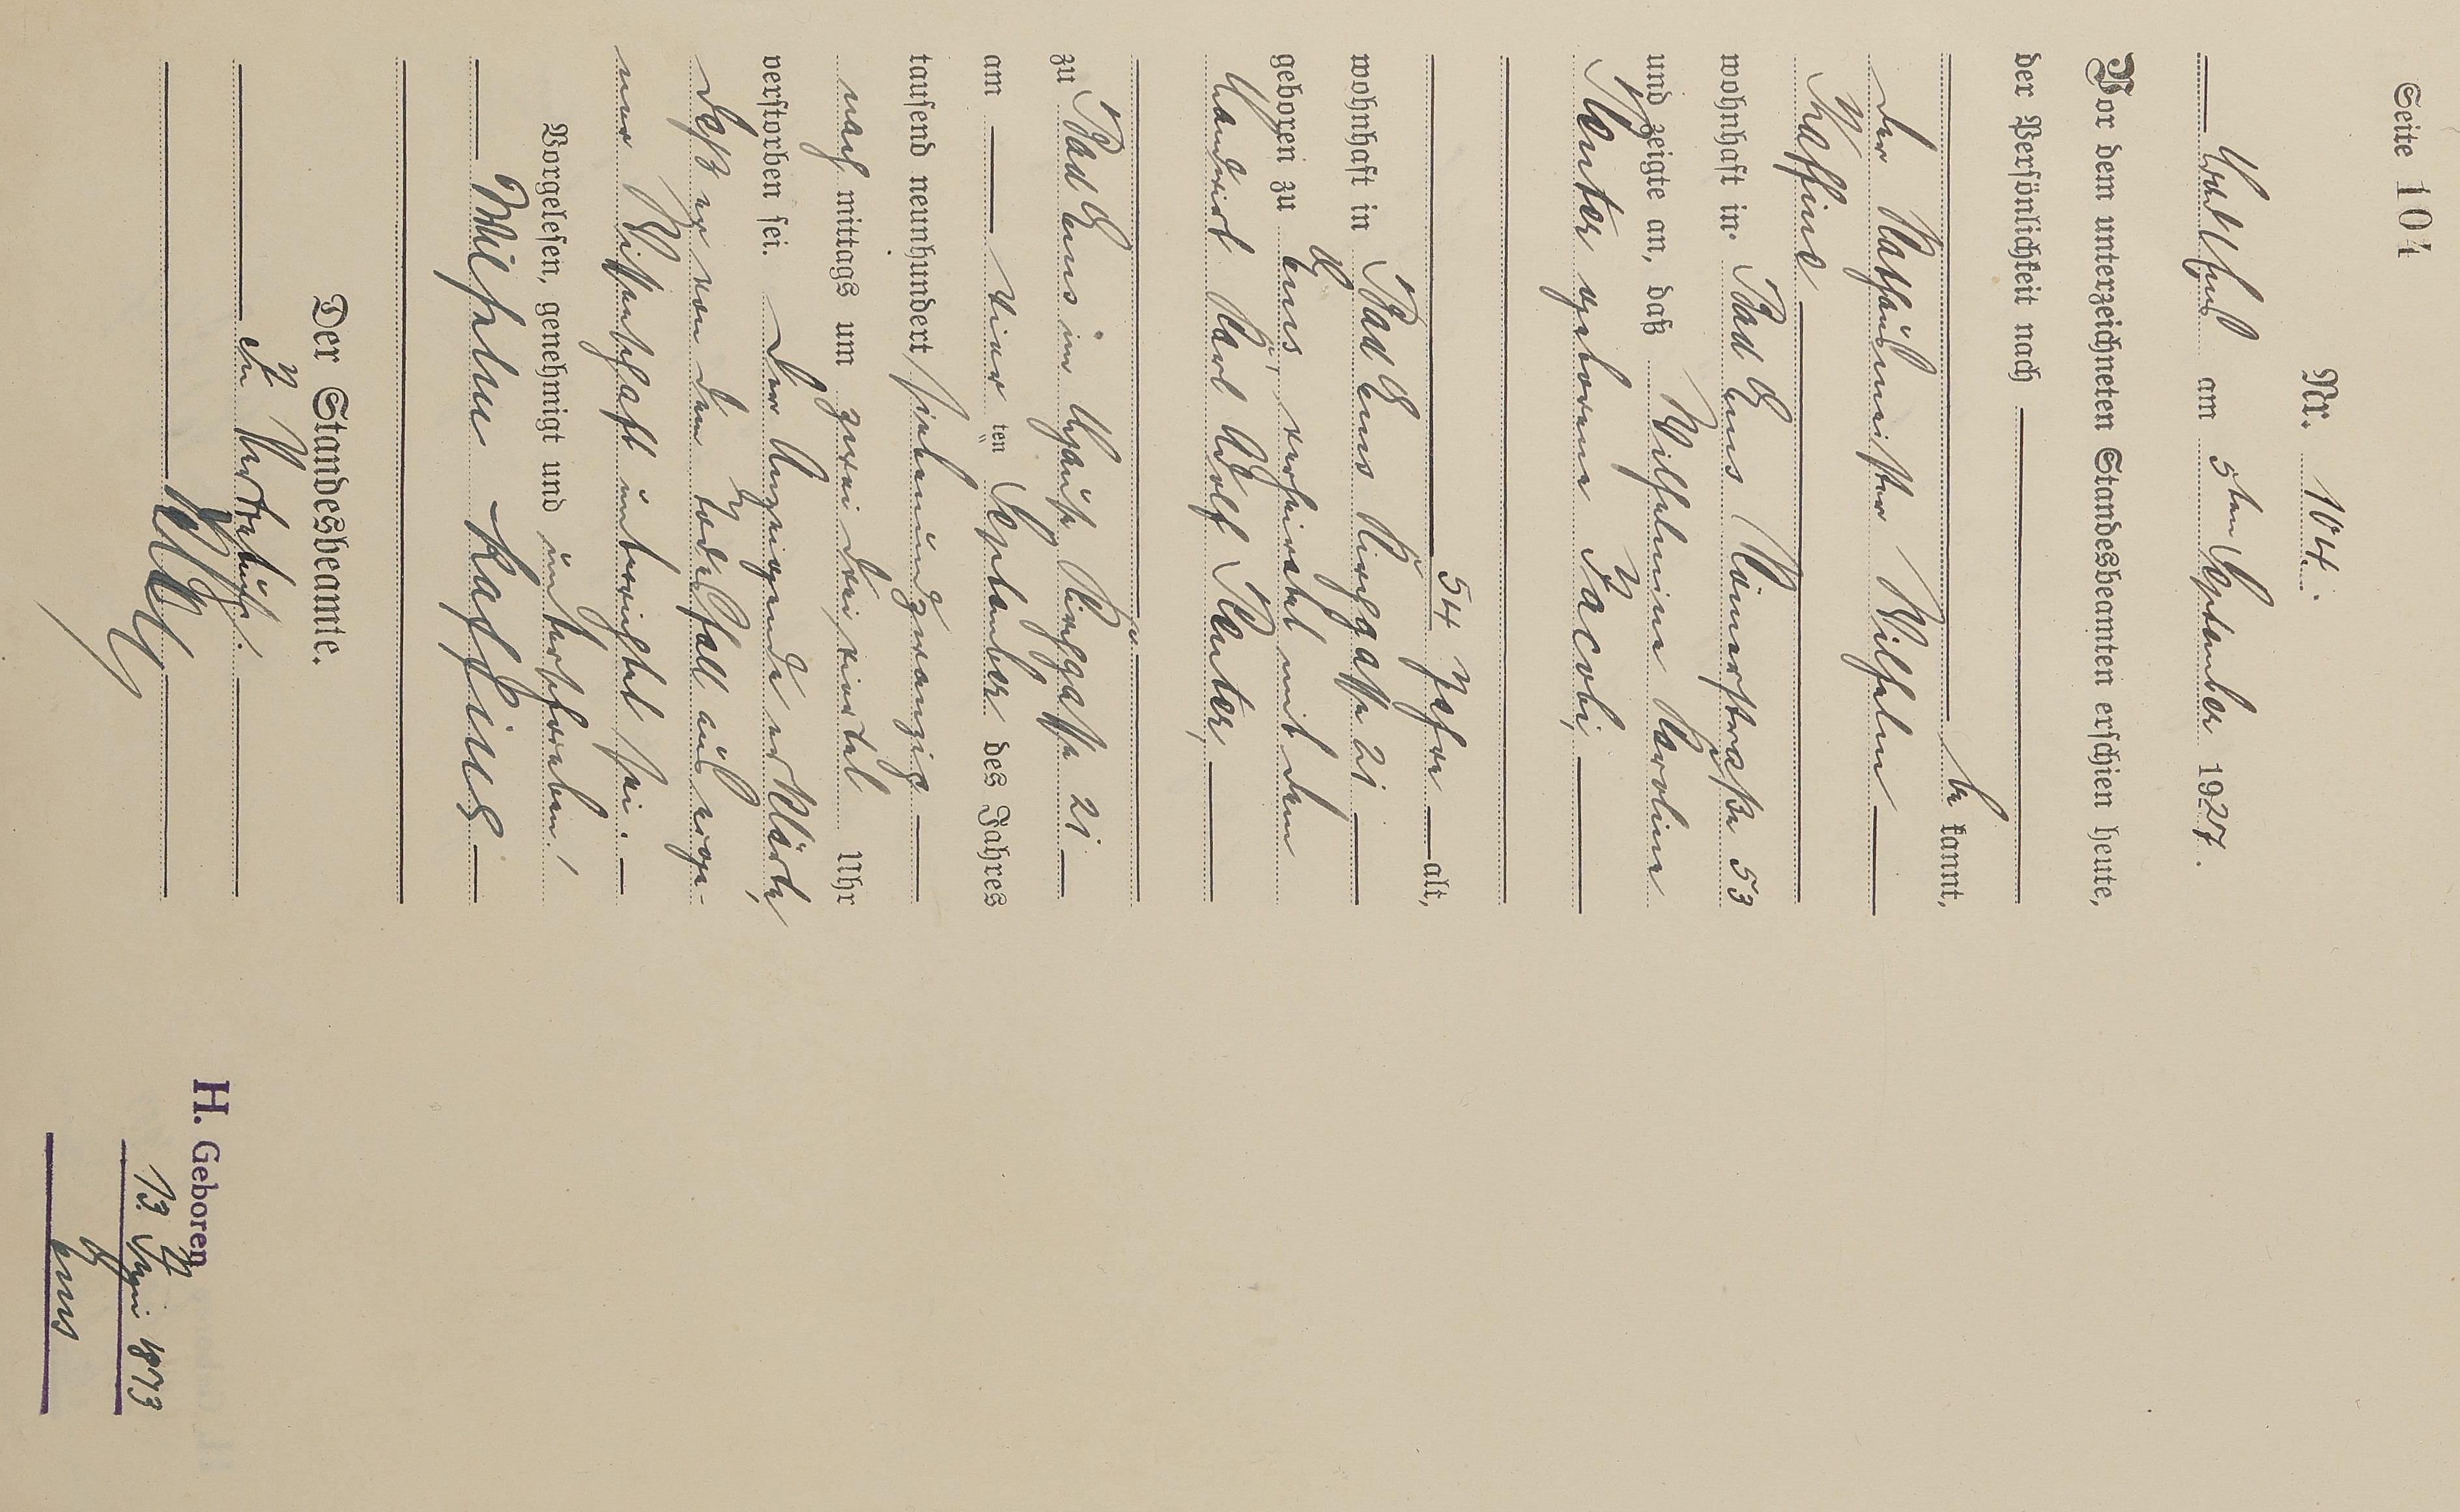 Seite 104
Nr. 104.
Bad Ems am 5ten September 1927.
Vor dem unterzeichneten Standesbeamten erschien heute,
der Persönlichkeit nach
be kannt,
der Wilhelm
wohnhaft in Bad Ems Römerstraße 53
und zeigte an, daß Wilhelmine Karoline
Reuter geborene Jacobi,
54 Jahre alt,
wohnhaft in Bad Ems Kirchgasse 21
geboren zu Ems, verheiratet mit dem
Landwirt Karl Adolf Reuter,
zu Bad Ems im Hause Kirchgasse 21
am vier ten September des Jahres
tausend neunhundert siebenundzwanzig
nach mittags um zwei drei viertel Uhr
verstorben sei. Der Anzeigende erklärte,
daß er von dem Todesfall aus eige-
ner Wissenschaft unterrichtet sei.
Vorgelesen, genehmigt und unterschrieben.
Wilhelm
Der Standesbeamte.
In Vertretung:
H. Geboren
13. Juni 1873
Ems